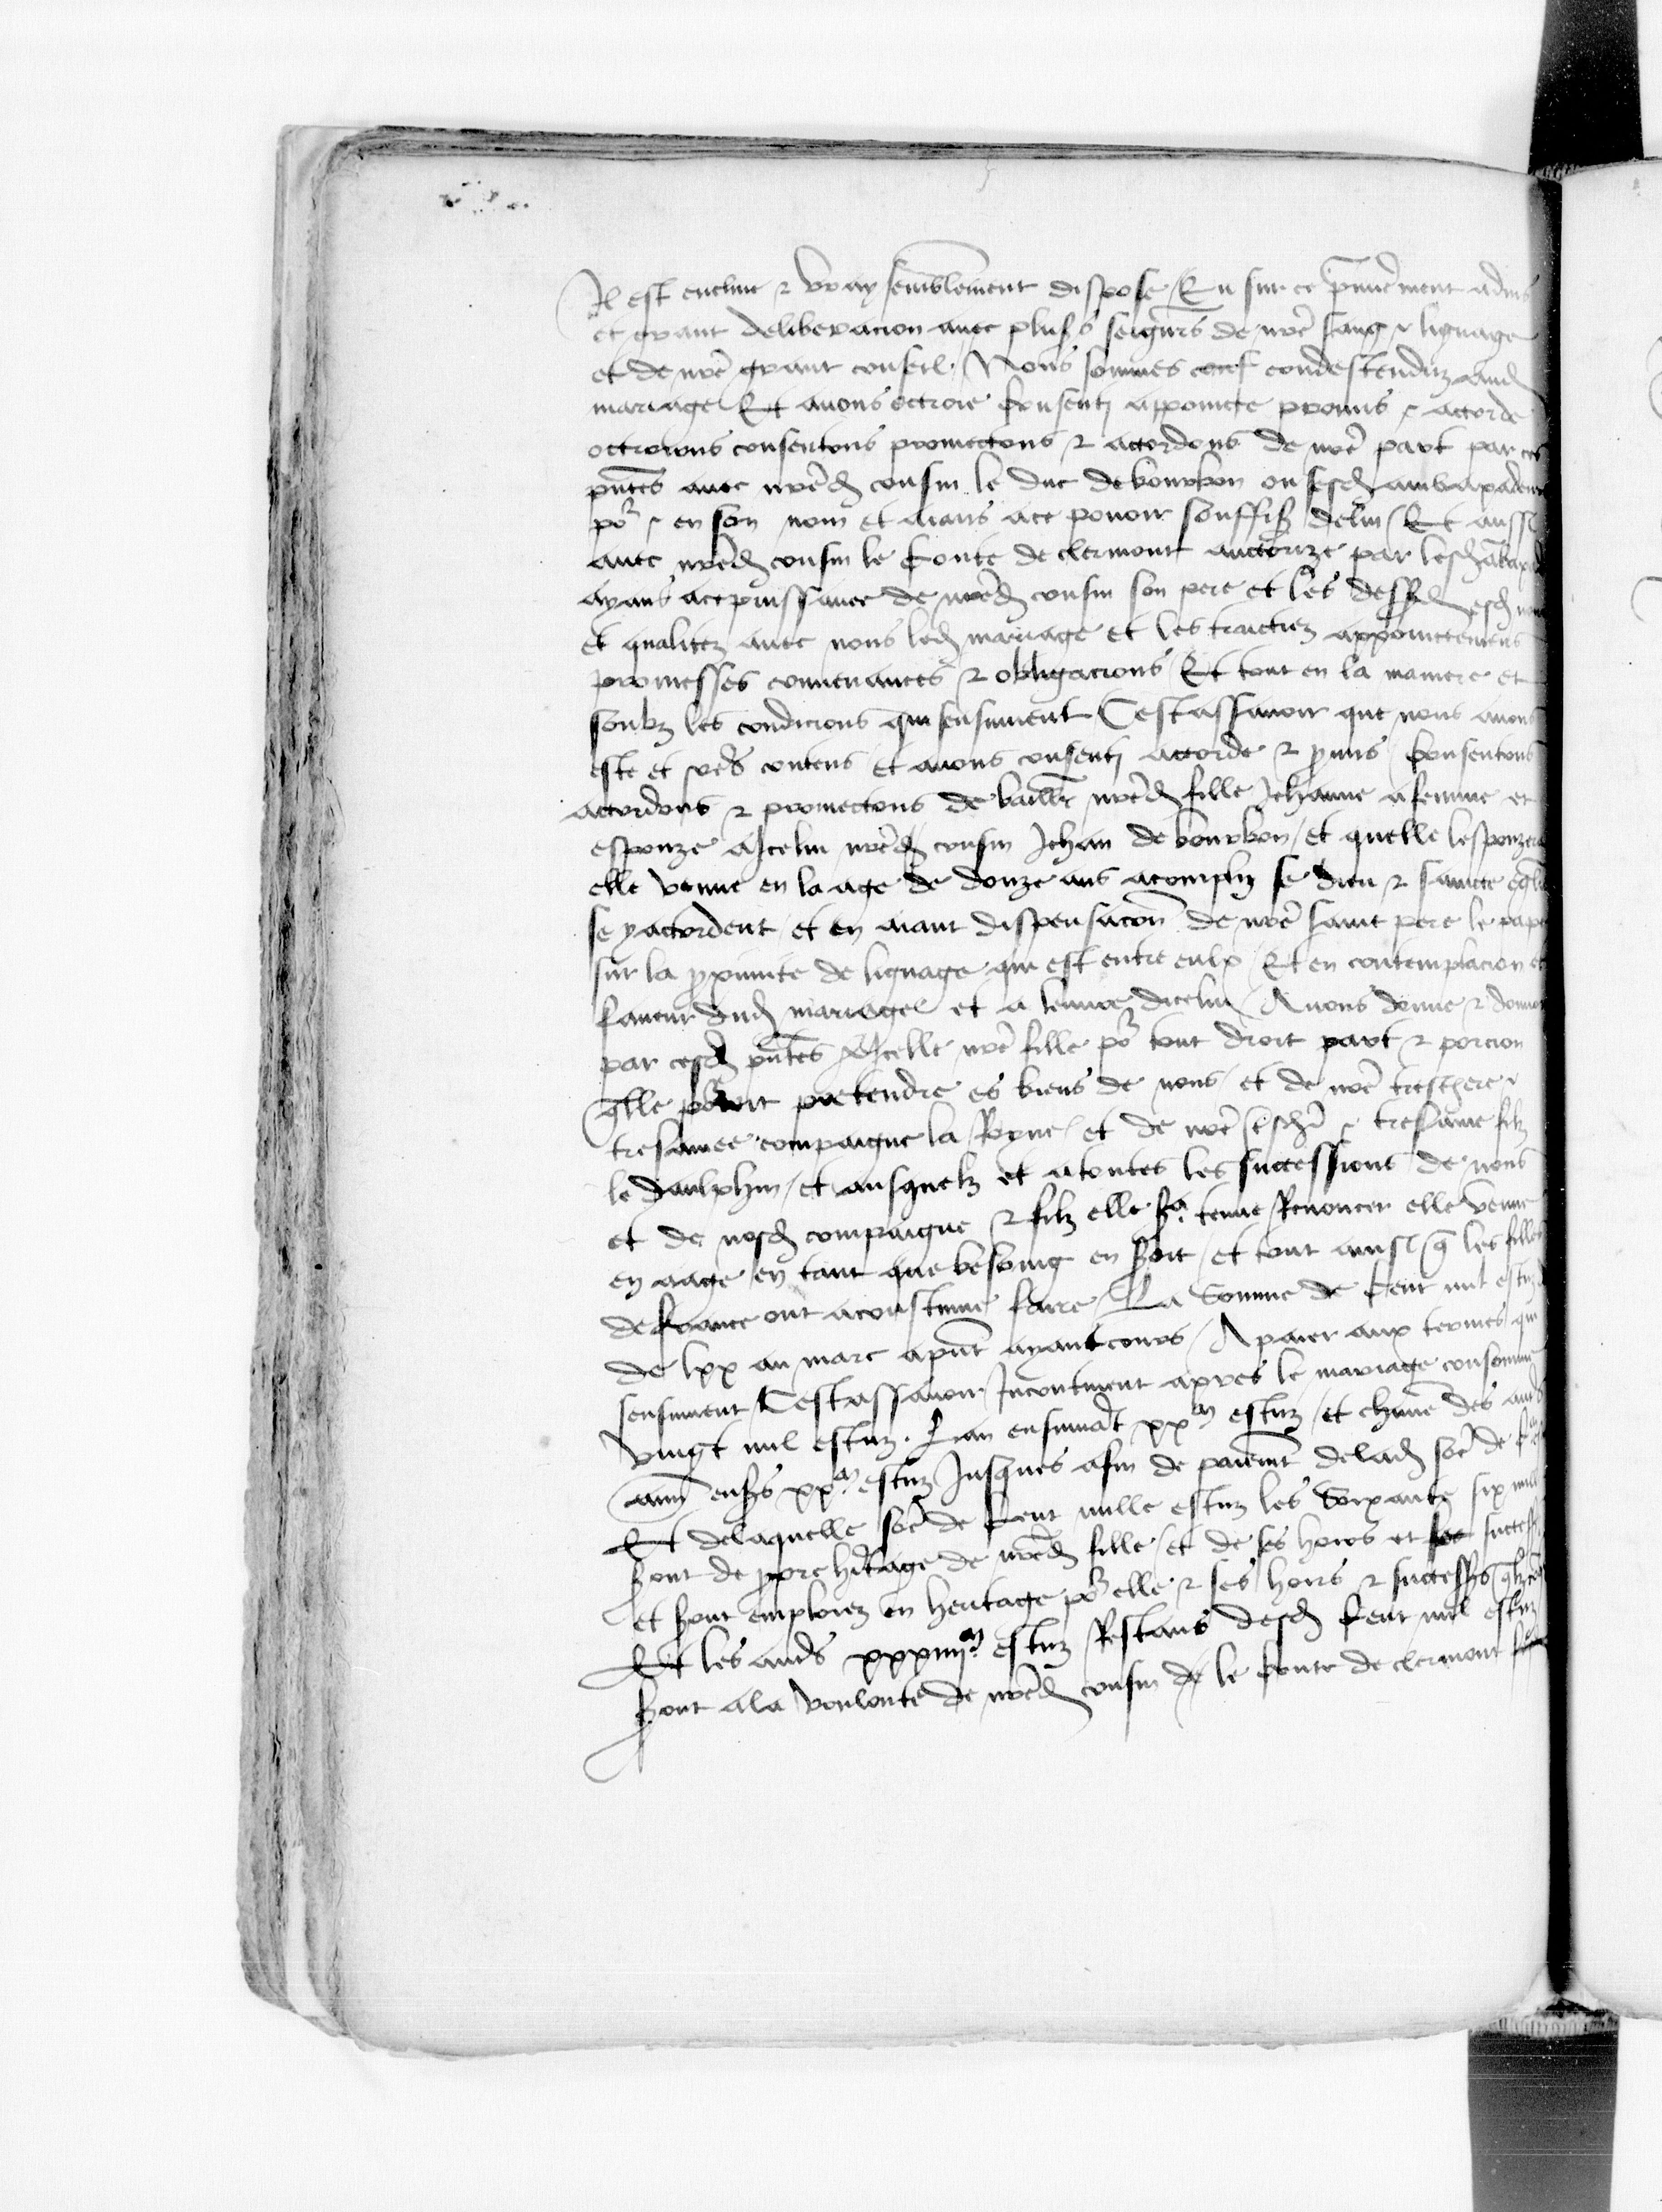 Il est encline & vray semblement dispose / Eu sur ce p̄mierment aduis
et grant deliberacion auec plus's seigneurs de nr̄e sang & lignage
et de nr̄e grant conseil / Nous sommes condescenduz aud
mariage Et auons octroie consenti appoincte promis & accorde
octroions consentons promectons & accordons de nr̄e part par ces
pn̄tes auec nr̄ed cousin le duc de bourbon ou sesd ambaxadeurs
por & en son nom et aians ace pouoir souffis' de lui / Et aussi
auec nr̄ed cousin le conte de clermont auctorize par lesd ambaxad
ayans ace puissance de nr̄ed cousin son pere et les dessusd esd noms
et qualitez auec nous led mariage et les traictiez appoinctemens
promesses conuenances & obligacions / Et tout en la maniere et
soubz les condicions qui sensuiuent / Cestassauoir que nous auons
este et contens et auons consenti accorde & p̄mis / consentons
accordons & promectons de bailler nr̄ed fille Jehanne a femme et
espouze a Icelui nr̄ed cousin Jehan de bourbon / et quelle lespouzera
elle venue en la age de douze ans acompliz se dieu & saincte eglise
se y accordent / et en aiant dispensacōn de nr̄e saint pere le pape
sur la p̄ximite de lignage qui est entre eulx / Et en contemplacion et
faueur dud mariage et a dicelui / Auons donne & donnons
par cesd pn̄tes a Icelle nr̄e fille por tout droit part & porcion
q̄lle porroit pretendre es biens de nous / et de nr̄e treschere &
tresamee compaigne la Royne / et de nr̄e treschr̄ & tresame filz
le daulphin / et ausquelz et a toutes les successions de nous
et de nosd compaigne & filz elle sa tenue Renoncer elle venue
en aage en tant que besoing en soit / et tout ainsi q̄ les filles
de france ont acoustume faire / La somme de Cent mil escuz
de lxx au marc a pn̄t ayant cours / A paier aux termes qui
sensuiuent / Cestassauoir Incontinent apres le mariage consomme
vingt mil escuz. Lan ensuiuāt xxm escuz / et chūne des aut's
ann ens's xxm escuz Jusques a fin de paiemt de lad so'e de
Et de laquelle so'e de Cent mille escuz les Soixante six mil
sont de p̄pre heritage de nr̄ed fille / et de ses hoirs et success
et sont emploiez en heritage por elle & ses hoirs & success's
Et les aut's xxxiiijm escuz Restans desd Cent mil escuz
sont a la voulonte de nr̄ed cousin de le conte de clermont